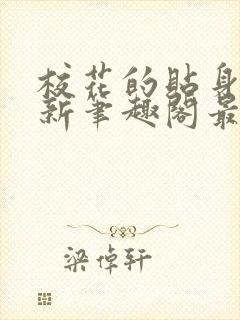 校花的贴身
新笔趣阁最
梁倬轩